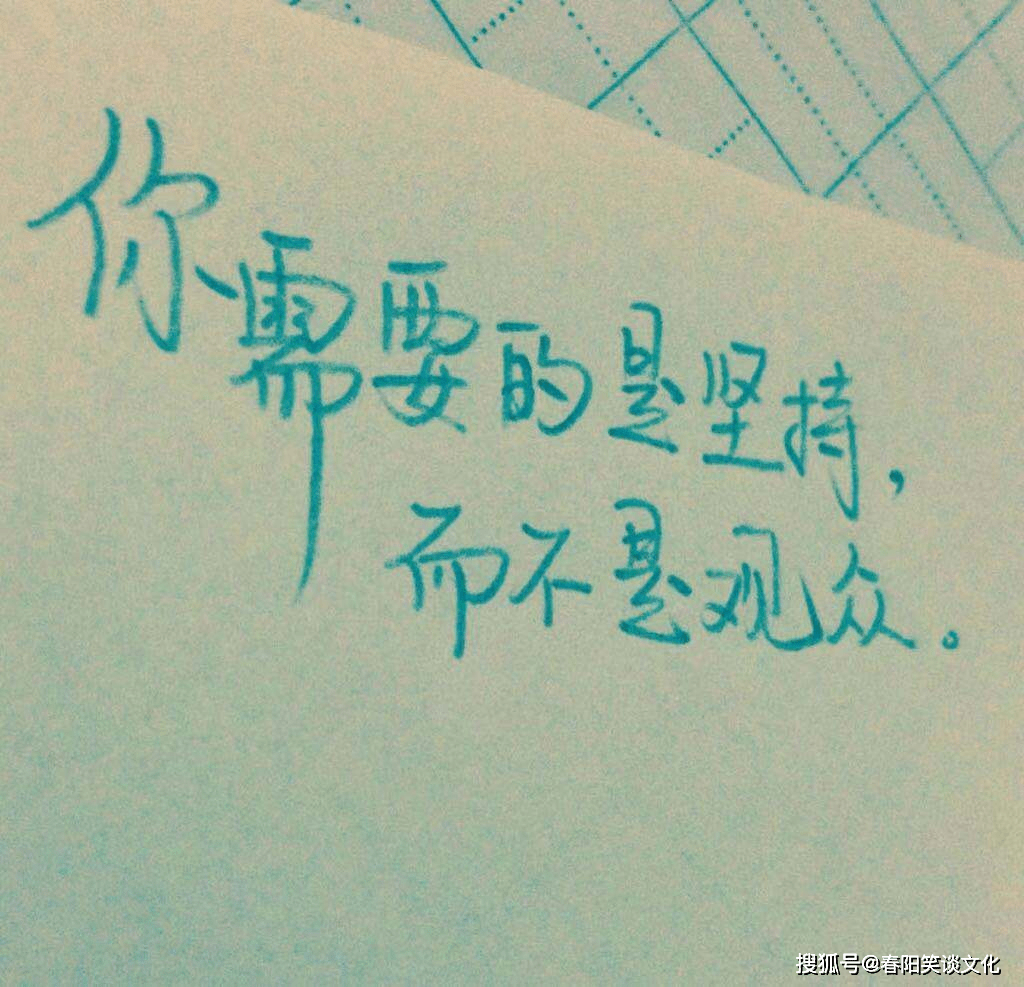 你需要的是坚持,
而不是观众。
搜狐号@春阳笑谈文化